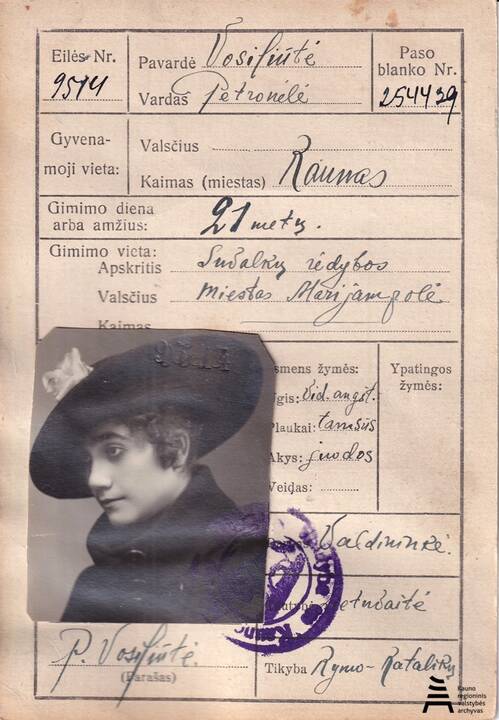 Eilės Nr.
9514
Pavardė Vosiliūtė
Vardas Petronėlė
Paso
blanko Nr.
254439
Gyvena-
moji vieta:
Valsčius
Kaimas (miestas) Kaunas
Gimimo diena
arba amžius: 21 metų.
Gimimo vieta:
Apskritis Suvalkų rėdybos
Valsčius miestas Marijampolė
Kaimas
9514
smens žymės:
Ypatingos
žymės:
gis: vid. augšt.
laukai: tamsūs
Akys: juodos
Veidas:
Valdininkė.
etuvaitė
P. Vosiliūtė.
(Parašas)
Tikyba Rymo-Katalikų
Kauno
regioninis
valstybės
archyvas